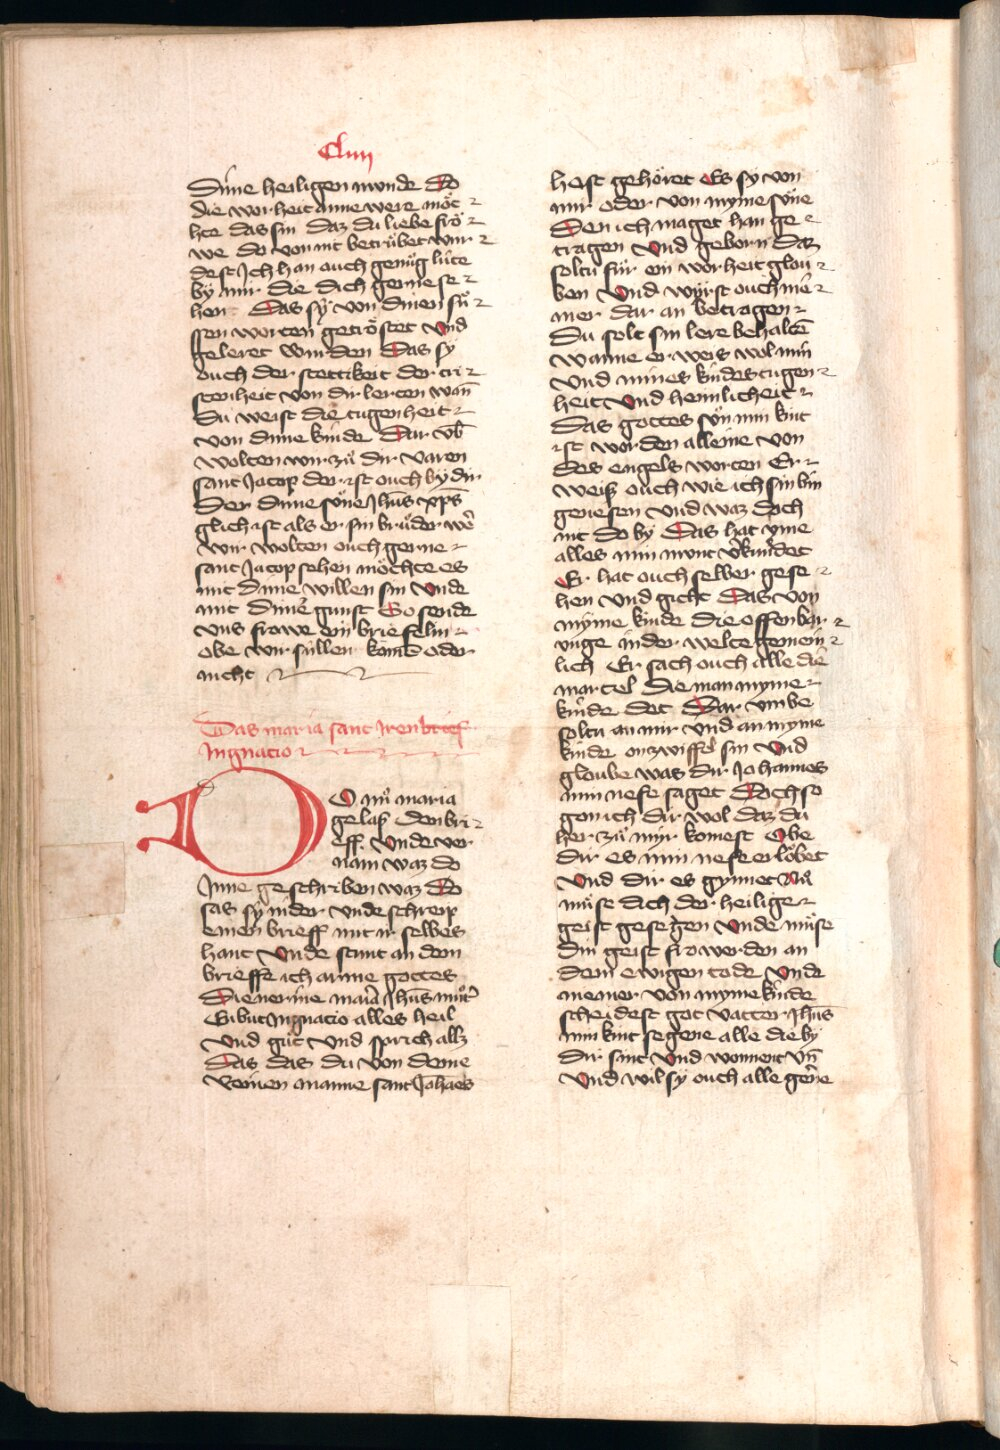 Cliiij
Dime heiligen munde Do
die worheit inne were möc
hte das sin daz du liebe frö
we do von nit betrübet wur
dest Ich han ouch genüg lüte
by mir die dich gerne se
hen Das sÿ von dinen sü
ssen worten getröstet vnd
geleret wurden Das sy
ouch der stettikeit der cri
stenheit von dir lerten wañ
Du weist die tugenheit
von dime kinde Dar vb̄
wolten wir zü dir varen
sant Jacop der ist ouch by dir
Der dime süne Jhūs xp̄s
glich ist als er sin brüder wē
wir wolten ouch gerne
sant Jacop sehen möchte es
mit dime willen sin vnde
mit dinē gunst So sende
vns frowe ein briefelin
obe wir süllen komē oder
nicht
Das maria sant iren brief
Ingnacio
DO nü maria
gelas den bri
eff vnde ver
nam waz do
Inne geschriben waz Do
sas sÿ nider vnde schreip
einen brieff mit ir selbes
hant vnde stunt an dem
brieffe ich arme gottes
Dienerine maīa Jhūs müt̄
Enbut Ingnacio alles heil
vnd güt vnd sprich allz
Das das du von deme
reinen manne sant Johānes
hest gehöret Es sy von
mir oder von myme süne
Den ich maget han ge
tragen vnd geborn daz
soltu für ein worheit glou
ben vnd würst ouch nie
mer dar an betragen
Du solt sin lere behaltē
wanne er weis wol min
vnd mines kindes tugen
heit vnd heimlicheit
Das gottes sün min kint
ist worden alleine von
des engels worten Er
weiß ouch wie ich sin bin
genesen vnd waz doch
nit do by Das hat yme
alles min munt v̄kündet
Er hat ouch selber gese
hen vnd gicht Das von
myme kinde die offenbar
unge in der welte gemein
lich Er sach ouch alle die
martel die man myme
kinde det Dar vmbe
soltu an mir vnd an myme
kinde onzwiffel sin vnd
gloube was dir Johannes
min nefe saget Doch so
gon ich dir wol daz du
her zü mir komest Obe
dir es min nefe erlöbet
vnd dir es gynnet Nü
müse dich der heilige
geist gesegen vnde müse
din geist fro werden an
dem ewigen tode vnde
niemer von myme kinde
scheidest got vatter Jhūs
min kint segene alle die by
dir sint vnd wonnent vn̄
vnd wil sy ouch alle gerne